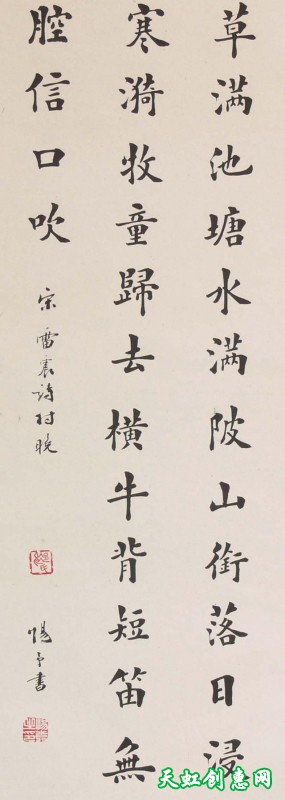 草满池塘水满陂山銜落日浸
寒漪牧童歸去橫牛背短笛無
腔信口吹
宋雷震詩村晚
惕予書
天虹创意网